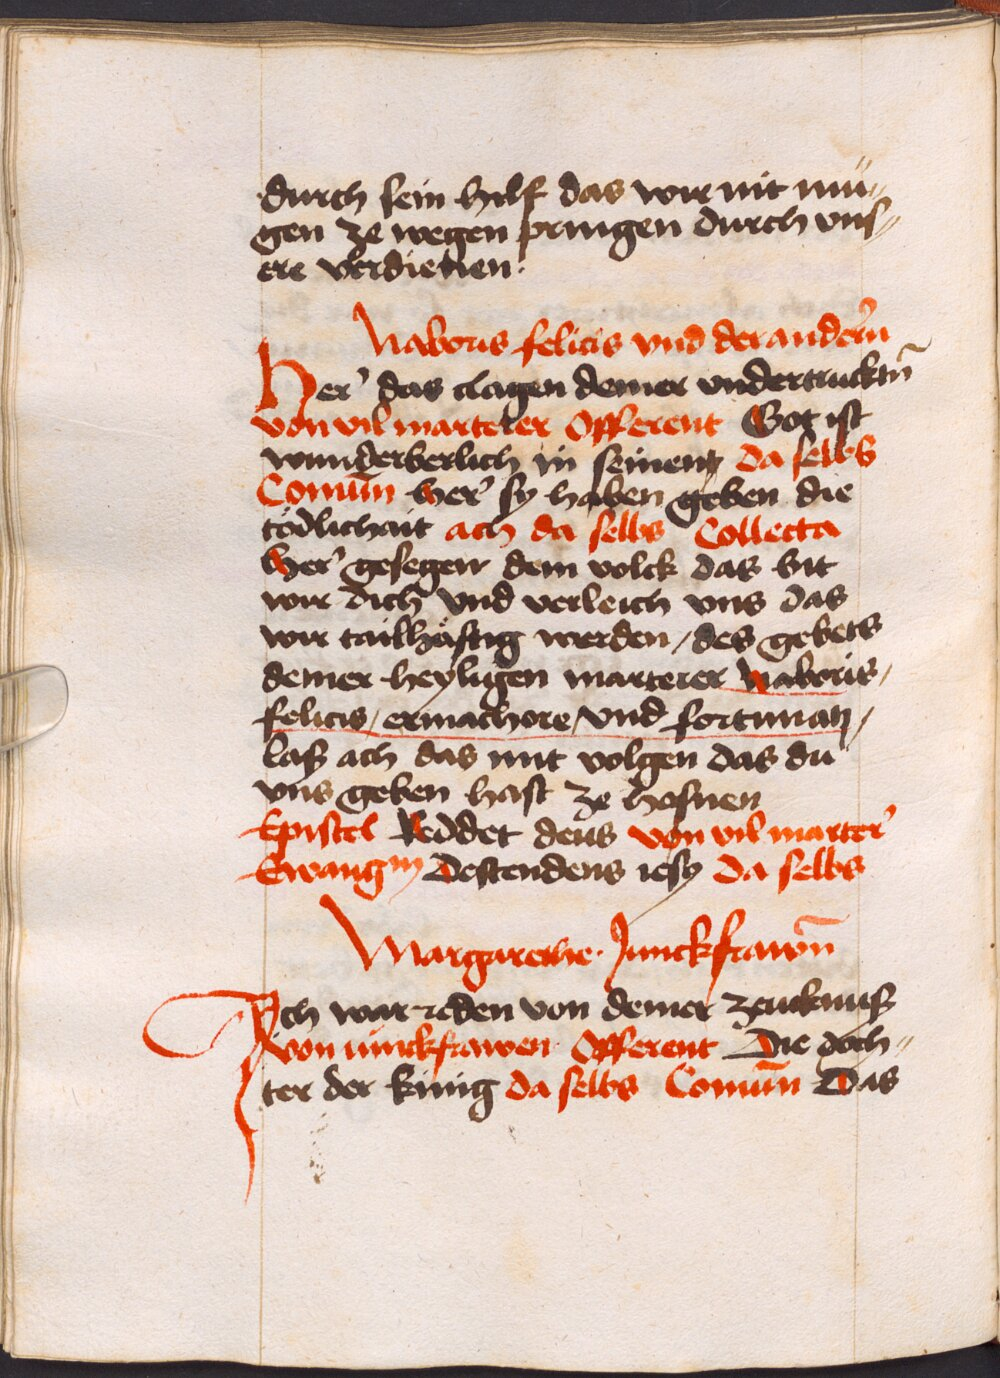 durch sein hilf das wir nit mü⸗
gen ze wegen pringen durch vns⸗
ere verdienen.
Naboris felicis vnd der andern̄
Her' das clagen deiner vndertrucktn̄
von vil marterer Offerent Got ist
wunderberlich in seinen da selbs
Comūn her' sy haben geben die
tödlichait ach da selbs Collecta
Her' gesegen dem volck das bit
wir dich vnd verleich vns das
wir tailhäftig werden / des gebets
deiner heyligen marterer Naboris /
felicis / ermachore / vnd fortunati /
laß ach das mit volgen das du
vns geben hast ze hofnen
Epistel Reddet deus von vil marter'
Ewangm Descendens iesus da selbs
Margarethe. Junckfrawn̄
Ich war reden von deiner zeucknuß
von iunckfrawen Offerent Die doch⸗
ter der king da selbs Comūn Das